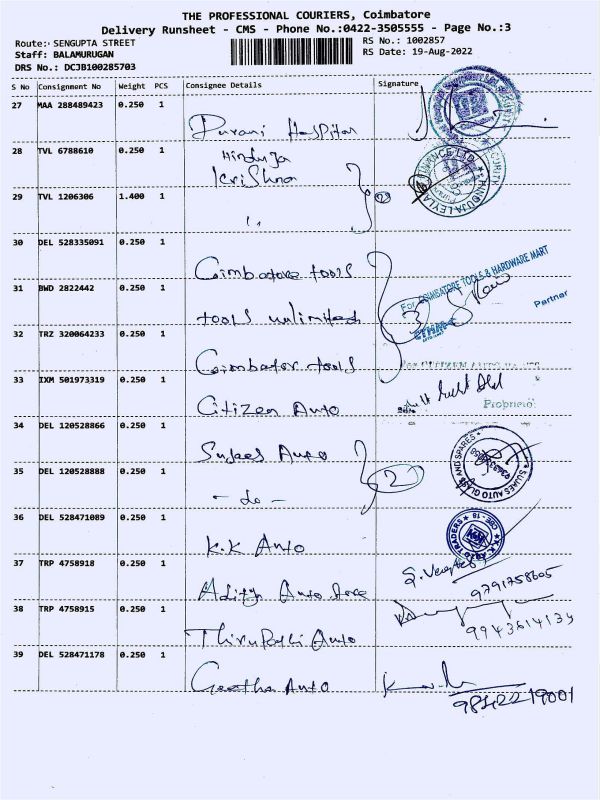 THE PROFESSIONAL COURIERS, Coimbatore
Delivery Runsheet - CMS - Phone No.:0422-3505555 - Page No.:3
Route: SENGUPTA STREET
Staff: BALAMURUGAN
DRS No.: DCJB100285703
RS No.: 1002857
RS Date: 19-Aug-2022
S No Consignment No Weight PCS Consignee Details Signature
27 MAA 288489423 0.250 1
Durani Hospital
28 TVL 6788610 0.250 1 Hinduja
Krishna
HINDUJA LEYLA
29 TVL 1206306 1.400 1
30 DEL 528335091 0.250 1
Coimbatore tools
For COIMBATORE TOOLS & HARDWARE MART
Partner
31 BWD 2822442 0.250 1
tools unlimited 3
32 TRZ 320064233 0.250 1
Coimbator tools
33 IXM 501973319 0.250 1
Citizen Auto
34 DEL 120528866 0.250 1
Sujaes Auto
SUJAES AUTO GLASS AND SPARES
35 DEL 120528888 0.250 1
- do - 2
36 DEL 528471089 0.250 1
K.K Auto
K.K. AUTO TRADERS CBE-18
37 TRP 4758918 0.250 1
Aditya Auto
9791758605
38 TRP 4758915 0.250 1
Thirupathi Auto
9943614134
39 DEL 528471178 0.250 1
Geetha Auto
9842219001